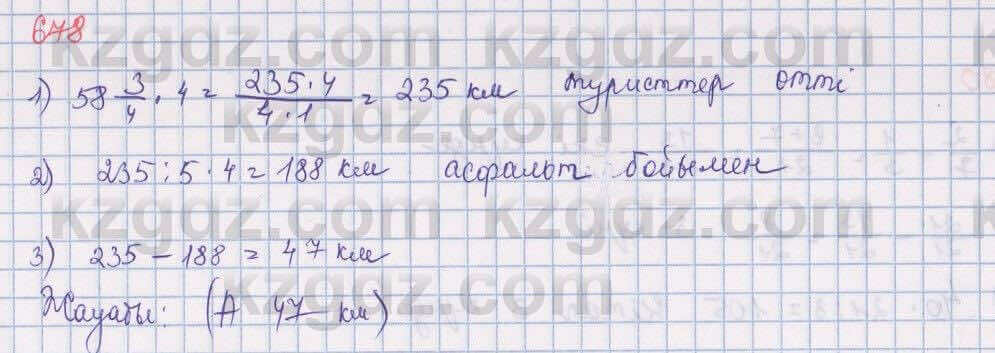 678
1) 58 3/4 · 4 = 235·4/4·1 = 235 км туристтер өтті
2) 235 : 5 · 4 = 188 км асфальт бойымен
3) 235 – 188 = 47 км
Жауабы: (А 47 км)
kzgdz.com kzgdz.com
kzgdz.com kzgdz.com
kzgdz.com kzgdz.com
kzgdz.com kzgdz.com